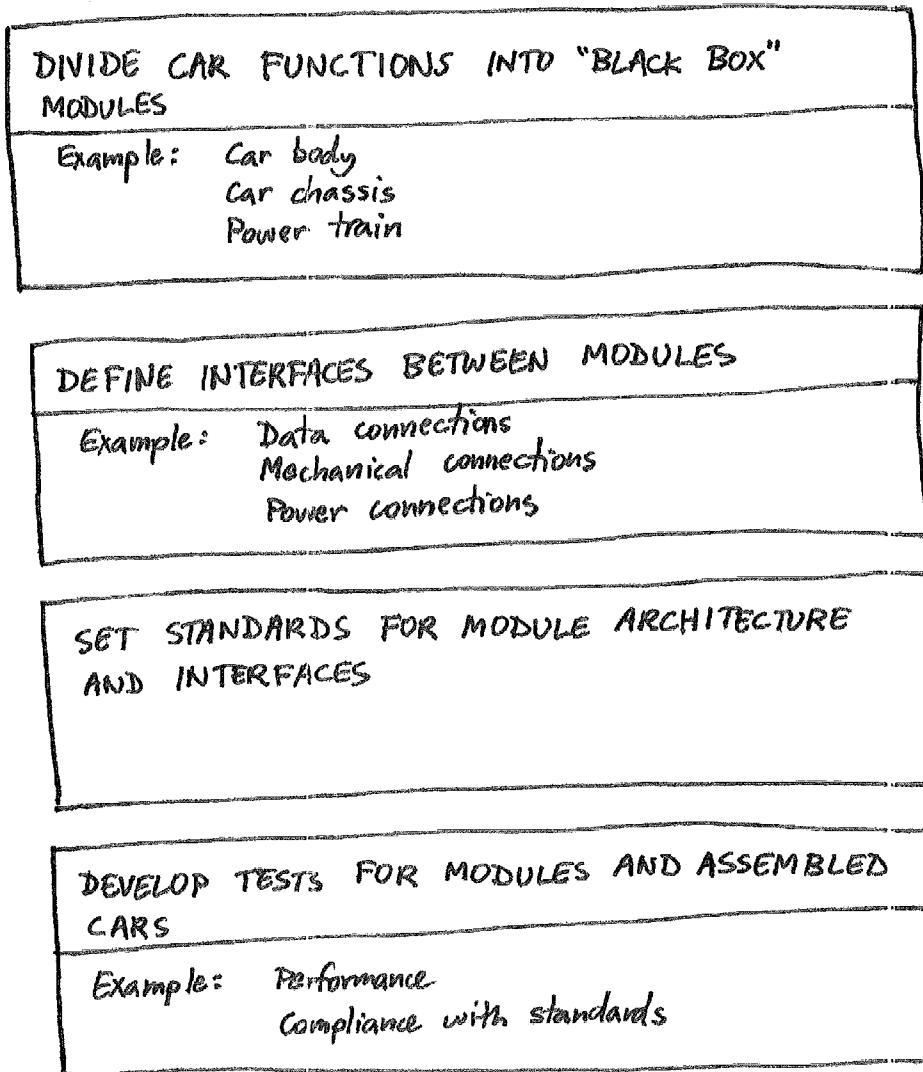 DIVIDE CAR FUNCTIONS INTO "BLACK BOX"
MODULES
Example: Car body
Car chassis
Power train
DEFINE INTERFACES BETWEEN MODULES
Example: Data connections
Mechanical connections
Power connections
SET STANDARDS FOR MODULE ARCHITECTURE
AND INTERFACES
DEVELOP TESTS FOR MODULES AND ASSEMBLED
CARS
Example: Performance
Compliance with standards